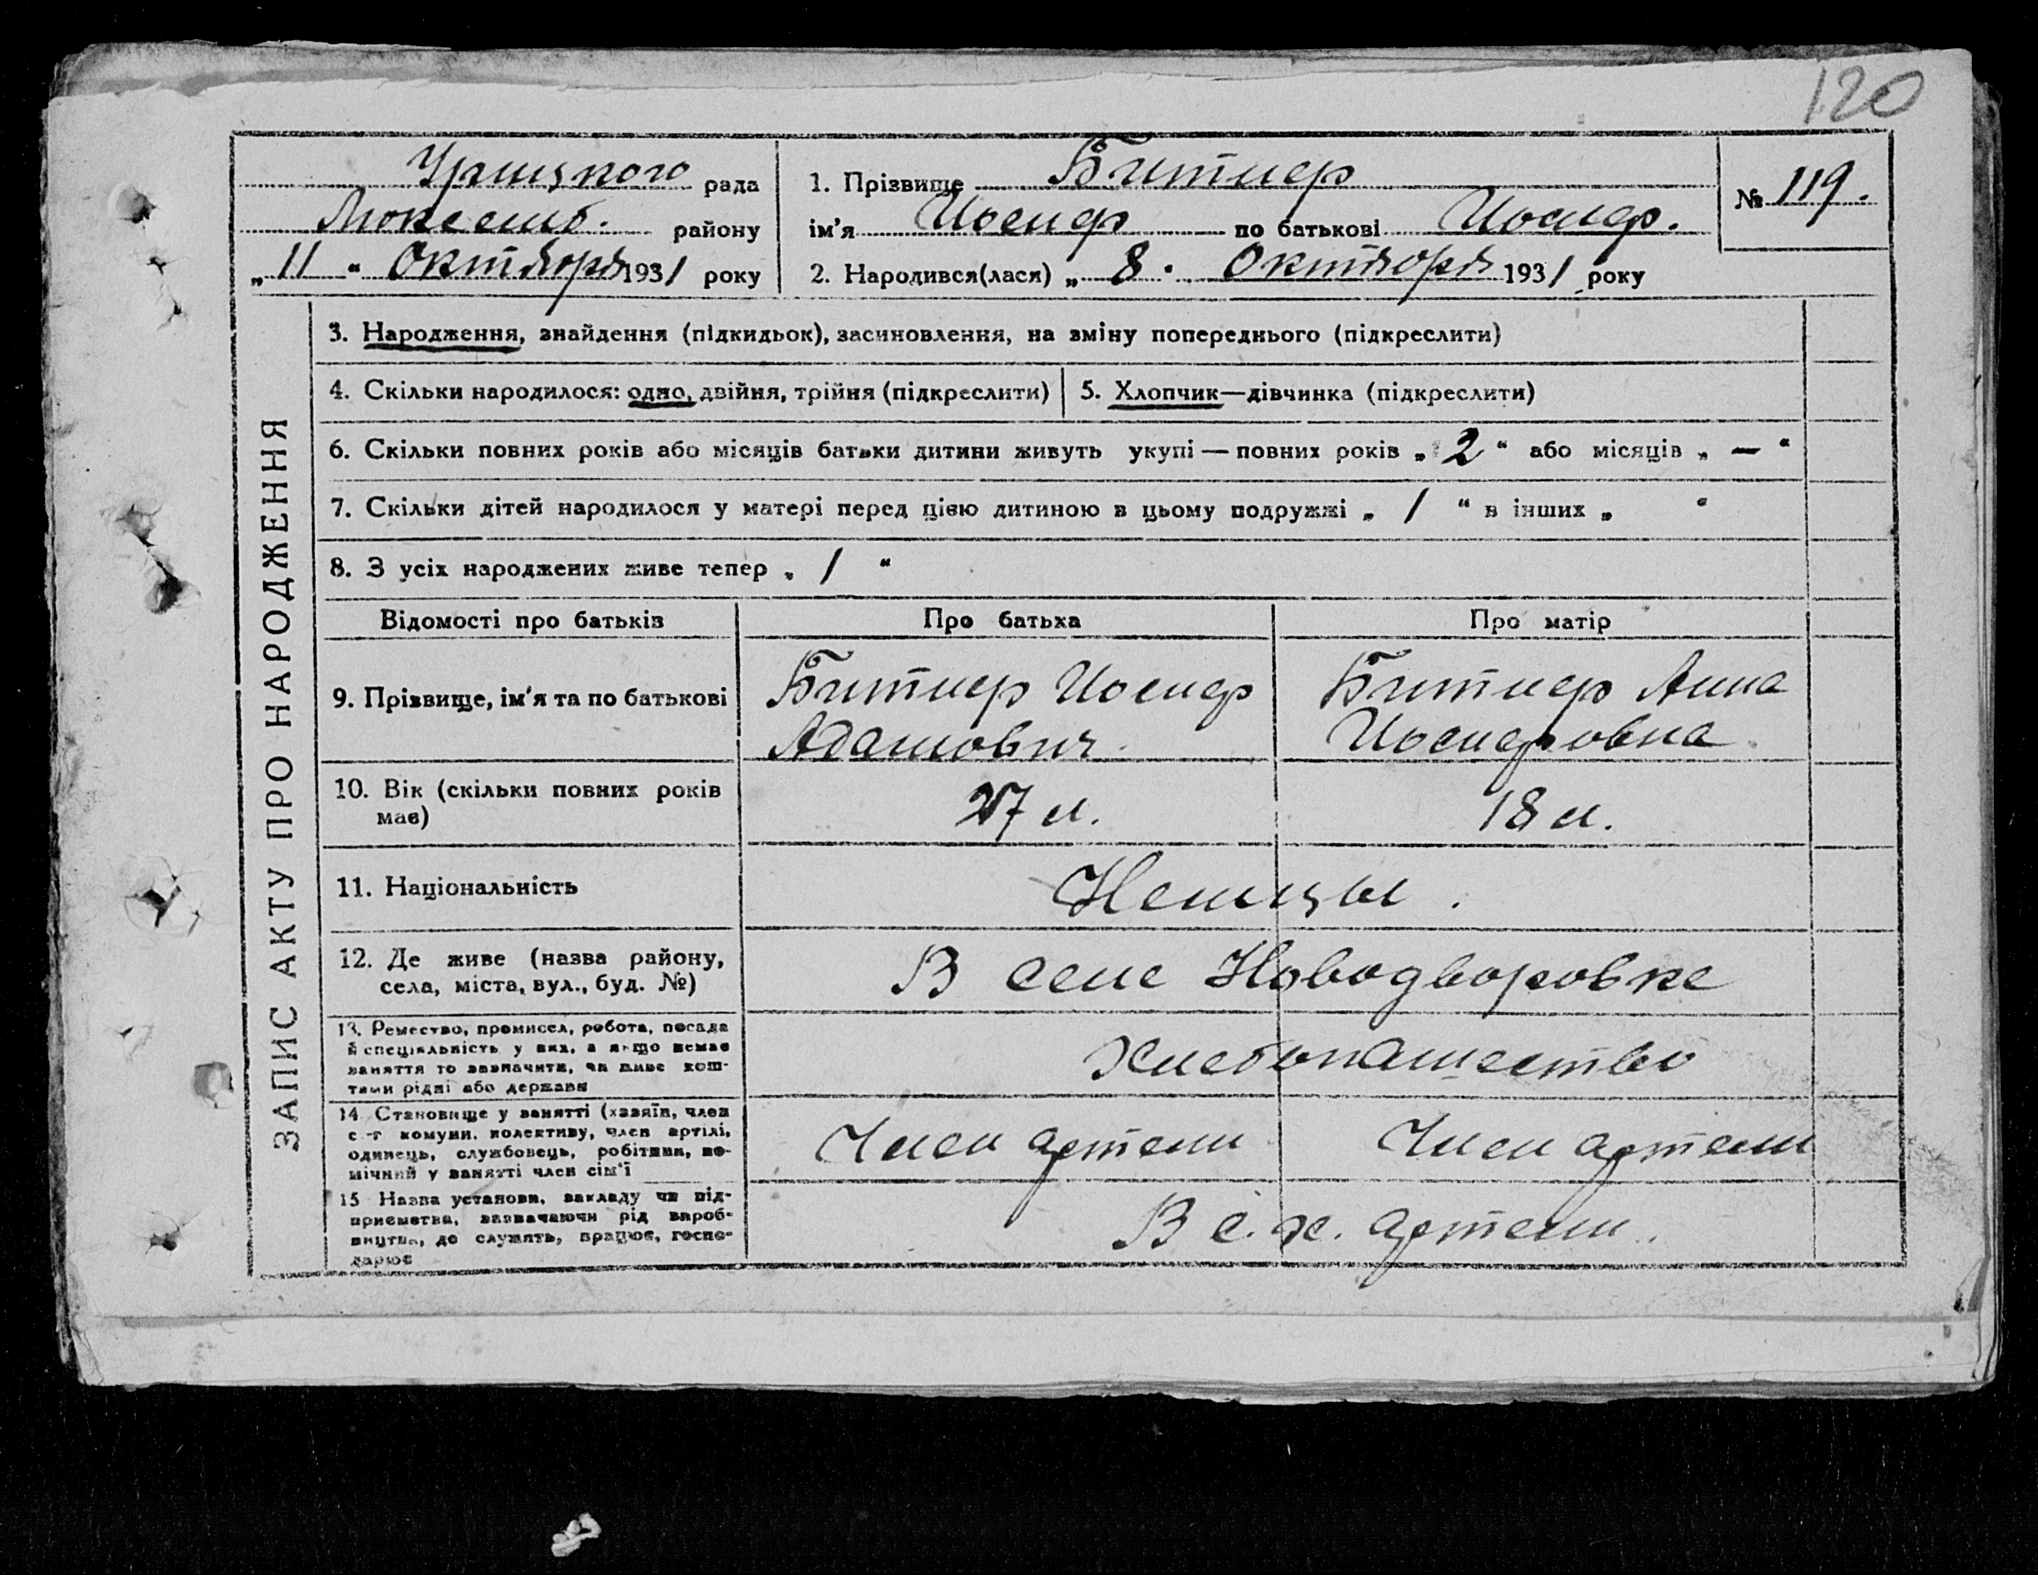 120
Урицкого рада
Люксемб. району
„ 11 “ Октября 1931 року
1. Прізвище Битнер
ім'я Иосиф по батькові Иосиф.
2. Народився(лася) „ 8 . Октября 1931 року
№ 119.
ЗАПИС АКТУ ПРО НАРОДЖЕННЯ
3. Народження, знайдення (підкидьок), засиновлення, на зміну попереднього (підкреслити)
4. Скільки народилося: одно, двійня, трійня (підкреслити)
5. Хлопчик—дівчинка (підкреслити)
6. Скільки повних років або місяців батьки дитини живуть укупі — повних років „ 2 “ або місяців „ — “
7. Скільки дітей народилося у матері перед цією дитиною в цьому подружжі „ 1 “ в інших „ “
8. З усіх народжених живе тепер „ 1 “
Відомості про батьків
Про батька
Про матір
9. Прізвище, ім'я та по батькові
Битнер Иосиф
Адамович.
Битнер Анна
Иосифовна
10. Вік (скільки повних років
має)
27 л.
18 л.
11. Національність
Немцы.
12. Де живе (назва району,
села, міста, вул., буд. №)
В селе Новодворовке
13. Ремество, промисел, робота, посада
й спеціяльність у них, а якщо немає
заняття то зазначити, чи живе кош-
тами рідні або держави
Хлебопашество
14 Становище у занятті (хазяїн, член
с.-г комуни, колективу, член артілі,
одинець, службовець, робітник, по-
мічний у занятті член сім'ї
Член артели
Член артели
15 Назва установи, закладу чи під-
приємства, зазначаючи рід вироб-
ництва, де служить, працює, госпо-
дарює
В с. х. артели.